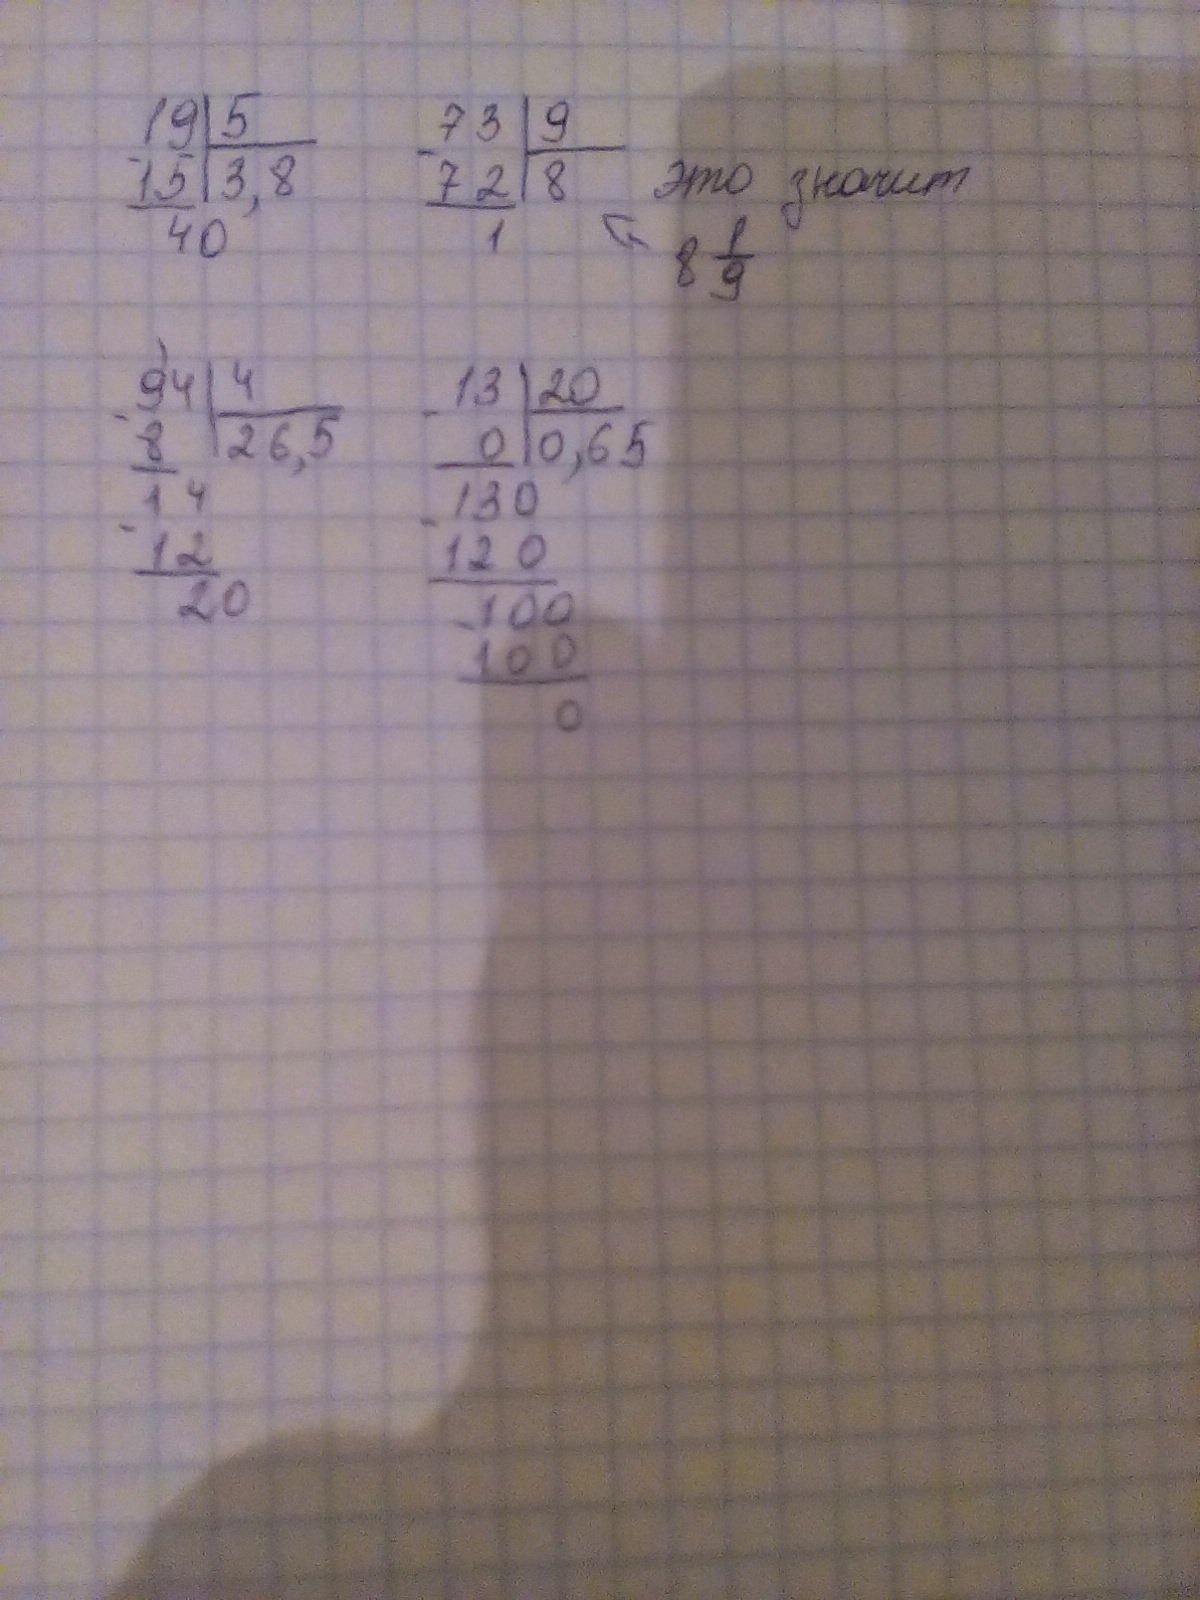 19 5
- 15 3,8
40
73 9
- 72 8
1
это значит
8 1/9
94 4
- 8 26,5
14
- 12
20
13 20
- 0 0,65
130
- 120
- 100
100
0